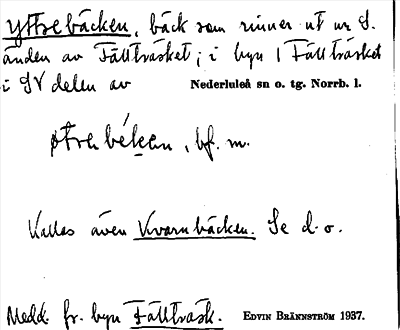 Yttrebäcken, bäck som rinner ut ur S.
änden av Fällträsket; i byn Fällträsket
i SV delen av Nederluleå sn o. tg. Norrb. l.
bf. m.
Kallas även Kvarnbäcken. Se d. o.
Medd. fr. byn Fällträsk. EDVIN BRÄNNSTRÖM 1937.